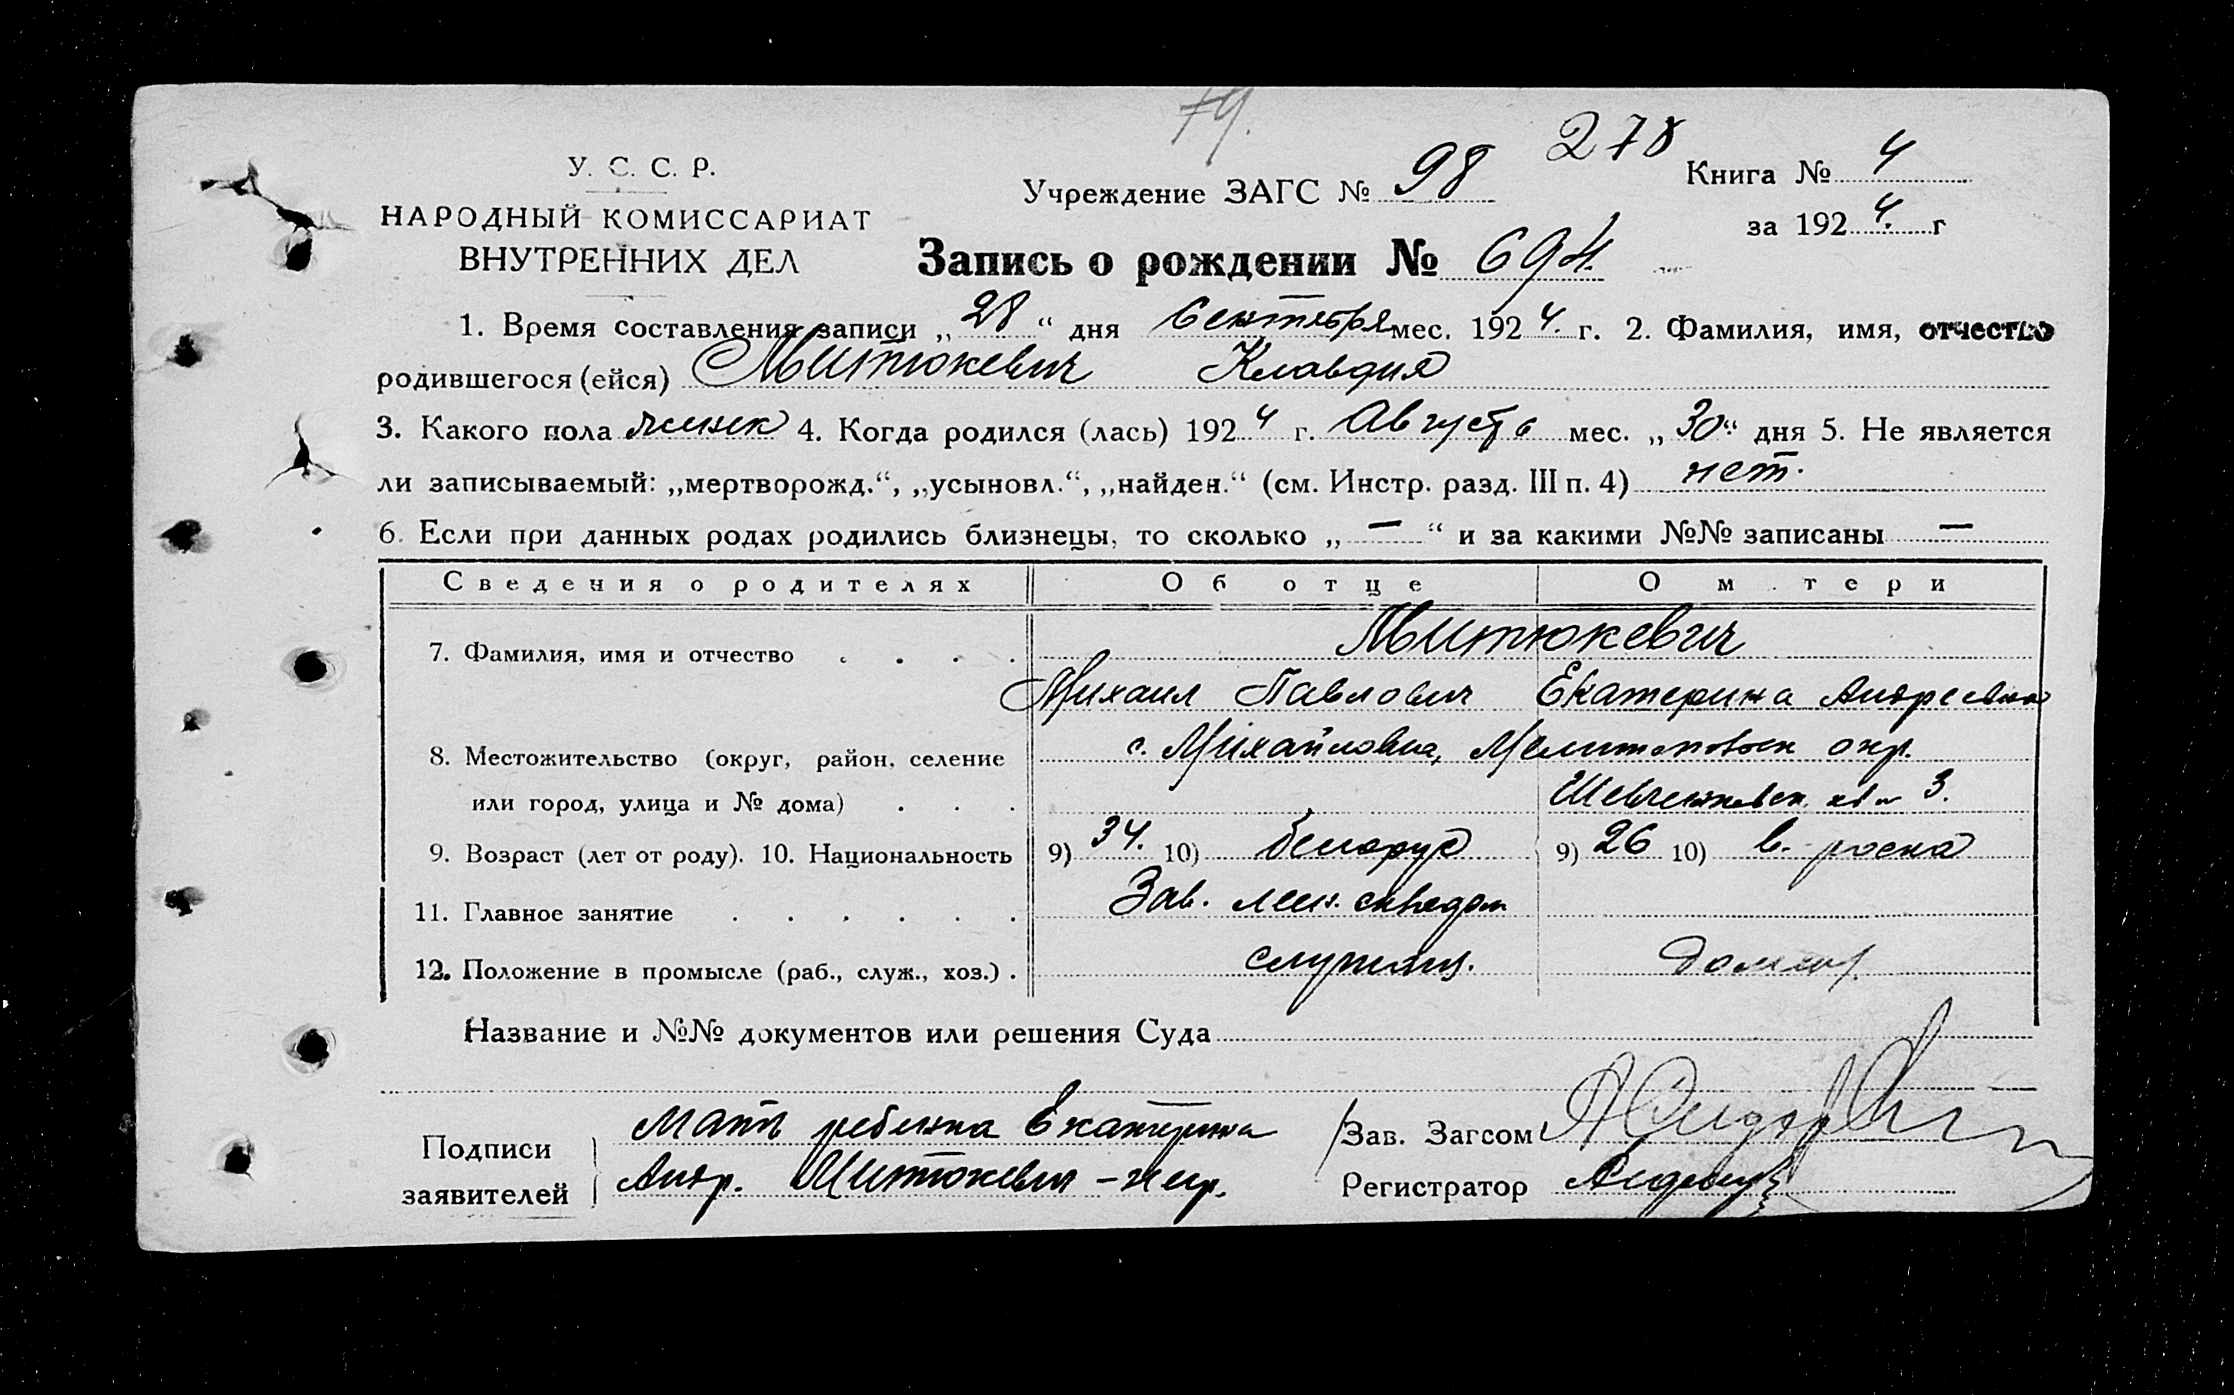 79.
278
У. С. С. Р.
НАРОДНЫЙ КОМИССАРИАТ
ВНУТРЕННИХ ДЕЛ
Учреждение ЗАГС № 98
Книга № 4
за 1924. г
Запись о рождении № 694.
1. Время составления записи „28“ дня Сентября мес. 1924. г. 2. Фамилия, имя, отчество
родившегося (ейся) Митюкевич Клавдия
3. Какого пола женск 4. Когда родился (лась) 1924 г. Августа мес. „30“ дня 5. Не является
ли записываемый: „мертворожд.“, „усыновл.“, „найден.“ (см. Инстр. разд. III п. 4) нет.
6. Если при данных родах родились близнецы, то сколько „—“ и за какими №№ записаны —
Сведения о родителях Об отце О м тери
7. Фамилия, имя и отчество . . . . Митюкевич
Михаил Павлович Екатерина Андреевна
8. Местожительство (округ, район, селение с. Михайловка, Мелитопольск окр.
или город, улица и № дома) . . . Шевченковск. 3.
9. Возраст (лет от роду). 10. Национальность 9) 34. 10) белорус 9) 26 10) в.-
11. Главное занятие . . . . . . Зав.
12. Положение в промысле (раб., служ., хоз.) . служащ.
Название и №№ документов или решения Суда
Подписи заявителей
Мать ребенка Екатерина
Андр. Митюкевич
Зав. Загсом
Регистратор